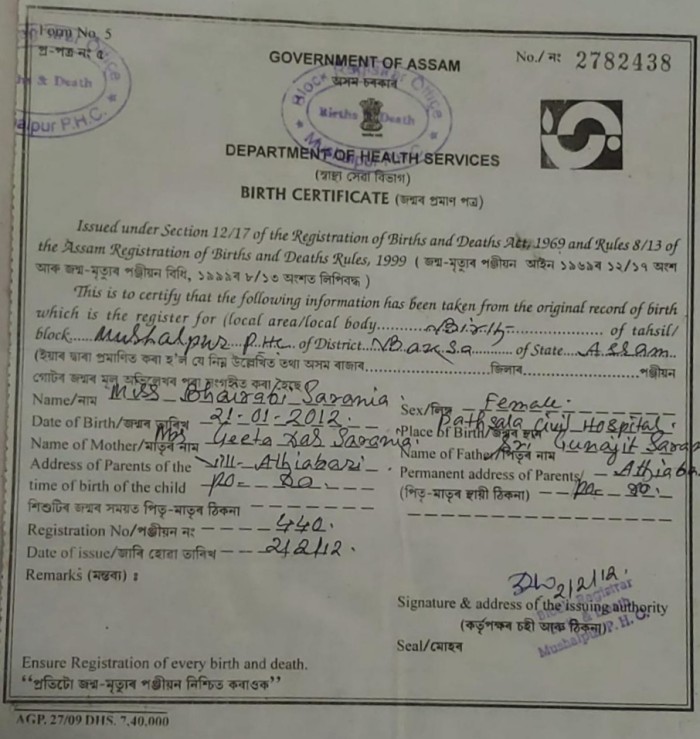 Form No. 5
প্ৰ-পত্ৰ নং ৫
No./ নং 2782438
GOVERNMENT OF ASSAM
অসম চৰকাৰ
Block Registrar Office
Births & Death
Mushalpur P.H.C.
DEPARTMENT OF HEALTH SERVICES
(স্বাস্থ্য সেৱা বিভাগ)
BIRTH CERTIFICATE (জন্মৰ প্ৰমাণ পত্ৰ)
Issued under Section 12/17 of the Registration of Births and Deaths Act, 1969 and Rules 8/13 of
the Assam Registration of Births and Deaths Rules, 1999 ( জন্ম-মৃত্যুৰ পঞ্জীয়ন আইন ১৯৬৯ৰ ১২/১৭ অংশ
আৰু জন্ম-মৃত্যুৰ পঞ্জীয়ন বিধি, ১৯৯৯ৰ ৮/১৩ অংশত লিপিবদ্ধ )
This is to certify that the following information has been taken from the original record of birth
which is the register for (local area/local body......Birth......of tahsil/
block....Mushalpur P.HC...of District..Baksa......of State...Assam
(ইয়াৰ দ্বাৰা প্ৰমাণিত কৰা হ'ল যে নিম্ন উল্লেখিত তথ্য অসম ৰাজ্যৰ..............জিলাৰ..............পঞ্জীয়ন
গোটৰ জন্মৰ মূল অভিলেখৰ পৰা সংগৃহিত কৰা হৈছে
Name/নাম Miss Bhairabi Sarania Sex/লিঙ্গ Female.
Date of Birth/জন্মৰ তাৰিখ 21-01-2012. Place of Birth/জন্মৰ স্থান Pathsala Civil Hospital.
Name of Mother/মাতৃৰ নাম Mrs Geeta Das Sarania Name of Father/পিতৃৰ নাম Sri Gunajit Saran
Address of Parents of the Vill- Athiabari Permanent address of Parents/ Athiaba
time of birth of the child PO= do (পিতৃ-মাতৃৰ স্থায়ী ঠিকনা) PO= do.
শিশুটিৰ জন্মৰ সময়ত পিতৃ-মাতৃৰ ঠিকনা
Registration No/পঞ্জীয়ন নং 440.
Date of issue/জাৰি হোৱা তাৰিখ 2/2/12.
Remarks (মন্তব্য) :
2/2/12.
Block Registrar
Birth & Death
Mushalpur P. H. C.
Signature & address of the issuing authority
(কৰ্তৃপক্ষৰ চহী আৰু ঠিকনা)
Seal/মোহৰ
Ensure Registration of every birth and death.
“প্ৰতিটো জন্ম-মৃত্যুৰ পঞ্জীয়ন নিশ্চিত কৰাওক”
AGP. 27/09 DHS. 7,40,000